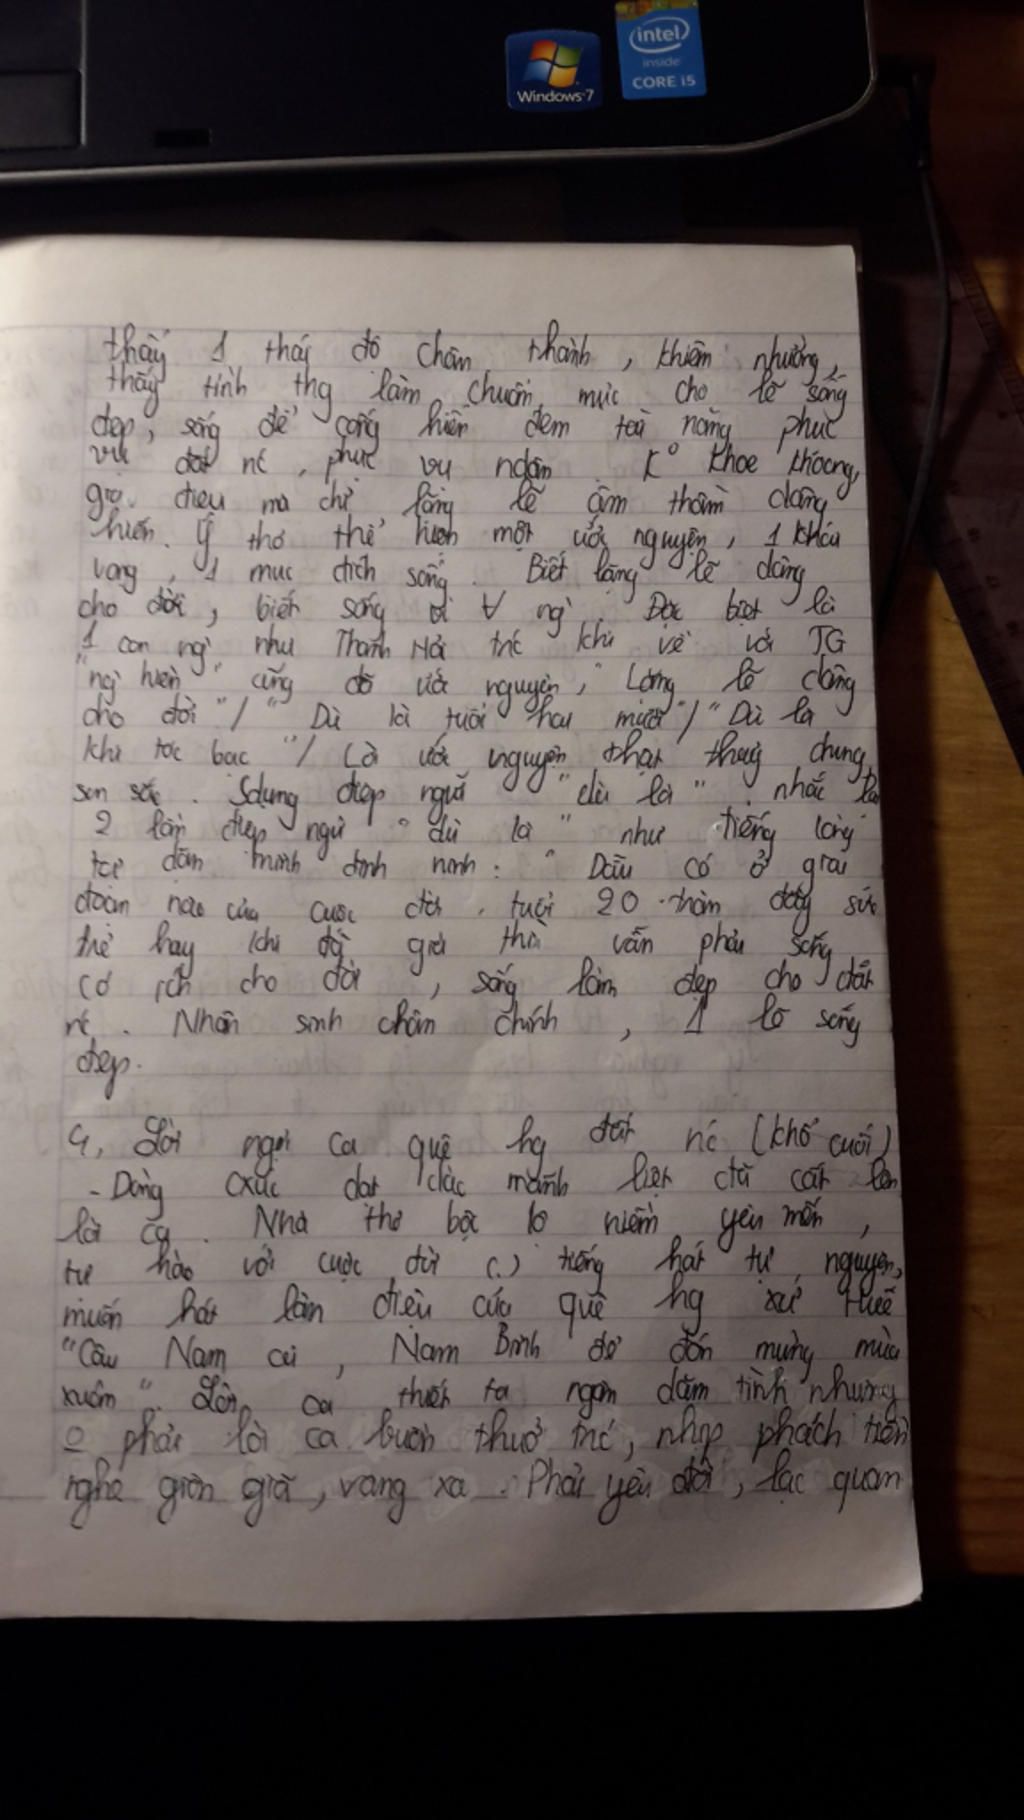 intel
inside
CORE i5
Windows 7
thấy 1 thái độ chân thành, khiêm nhường,
thấy tình thg làm chuẩn mực cho lẽ sống
đẹp, sống để cống hiến đem tài năng phục
vụ đất nc, phục vụ ndân. K° khoe khoang,
giả điệu mà chỉ lặng lẽ âm thầm dâng
hiến. Ý thơ thể hiện một ước nguyện, 1 khát
vọng, 1 mục đích sống. Biết lặng lẽ dâng
cho đời, biết sống vì ∀ ng`. Đặc biệt là
1 con ng` như Thanh Hải trc khi về với TG
"ng` hiền" cũng đã ước nguyện, "Lặng lẽ dâng
cho đời"/ "Dù là tuổi hai mươi"/ "Dù là
khi tóc bạc"/ Lời ước nguyện thật thuỷ chung,
son sắt. Sdụng điệp ngữ "dù là". nhắc lại
2 lần điệp ngữ "dù là" như tiếng lòng
tự dặn mình đinh ninh: "Dẫu có ở giai
đoạn nào của cuộc đời, tuổi 20 tràn đầy sức
trẻ hay khi đã già thì vẫn phải sống
có ích cho đời, sống làm đẹp cho đất
nc. Nhân sinh chân chính, 1 lẽ sống
đẹp.
4, Lời ngợi ca quê hg đất nc (khổ cuối)
- Dòng cxúc dạt dào mãnh liệt đã cất lên
lời ca. Nhà thơ bộc lộ niềm yêu mến,
tự hào với cuộc đời (.) tiếng hát tự nguyện,
muốn hát làn điệu của quê hg xứ Huế
"Câu Nam ai, Nam Bình để đón mừng mùa
xuân". Lời ca thiết tha ngân dặm tình nhưng
o phải lời ca buồn thuở trc, nhịp phách tiền
nghe giòn giã, vang xa. Phải yêu đời, lạc quan